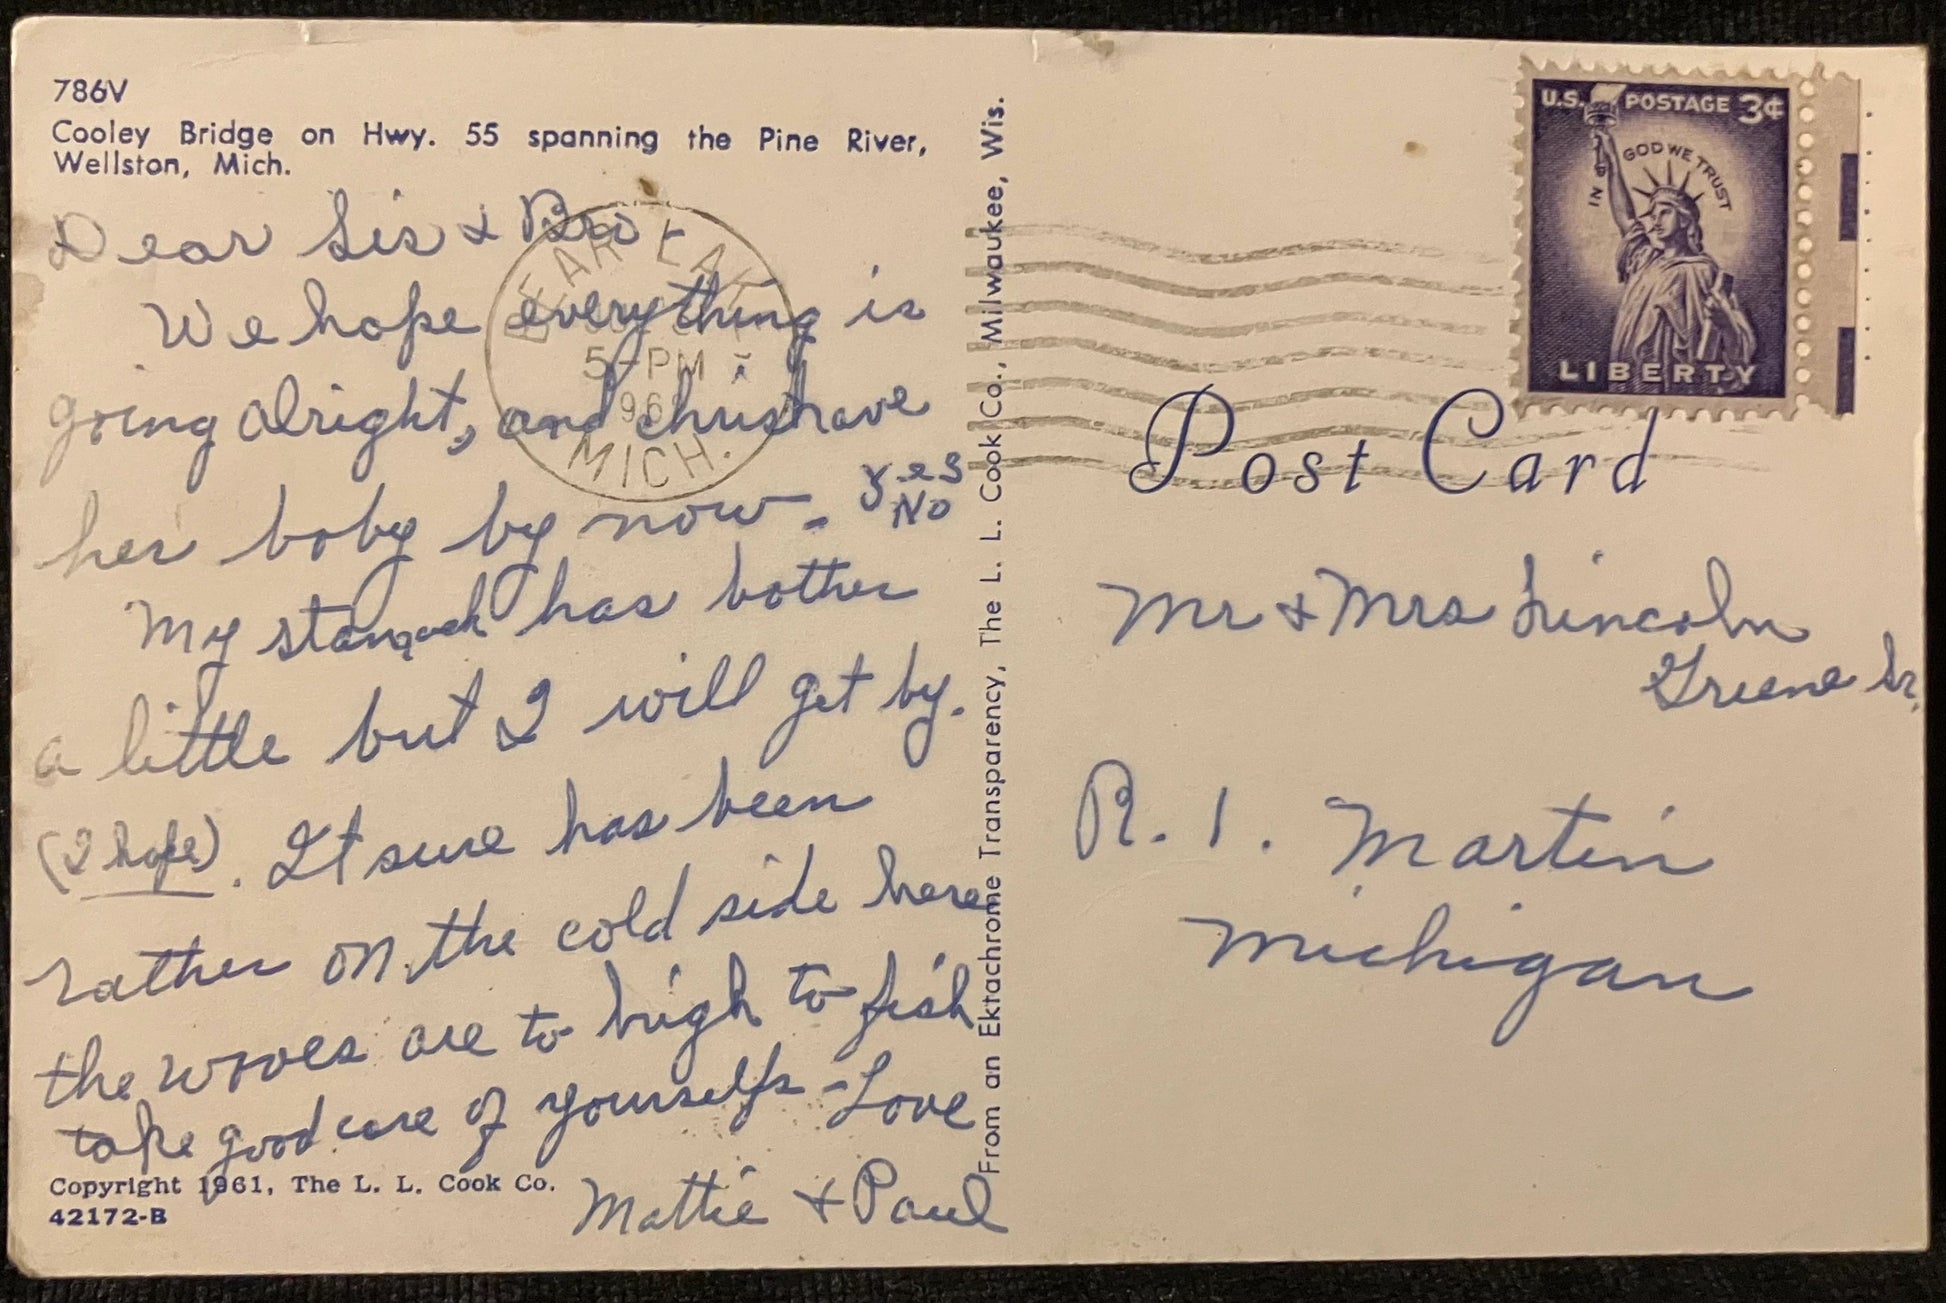 786V
Cooley Bridge on Hwy. 55 spanning the Pine River,
Wellston, Mich.
Dear Sis & Bro -
We hope everything is
going alright, and chris have
her baby by now - yes
No
My stomach has bother
a little but I will get by.
(I hope). It sure has been
rather on the cold side here
the waves are to high to fish
take good care of yourselfs - Love
Mattie & Paul
Copyright 1961, The L. L. Cook Co.
42172-B
BEAR LAKE
5-PM
196
MICH.
From an Ektachrome Transparency, The L. L. Cook Co., Milwaukee, Wis.
U.S. POSTAGE 3¢
IN GOD WE TRUST
LIBERTY
Post Card
Mr & Mrs Lincoln
Greene Sr.
R. 1. Martin
Michigan